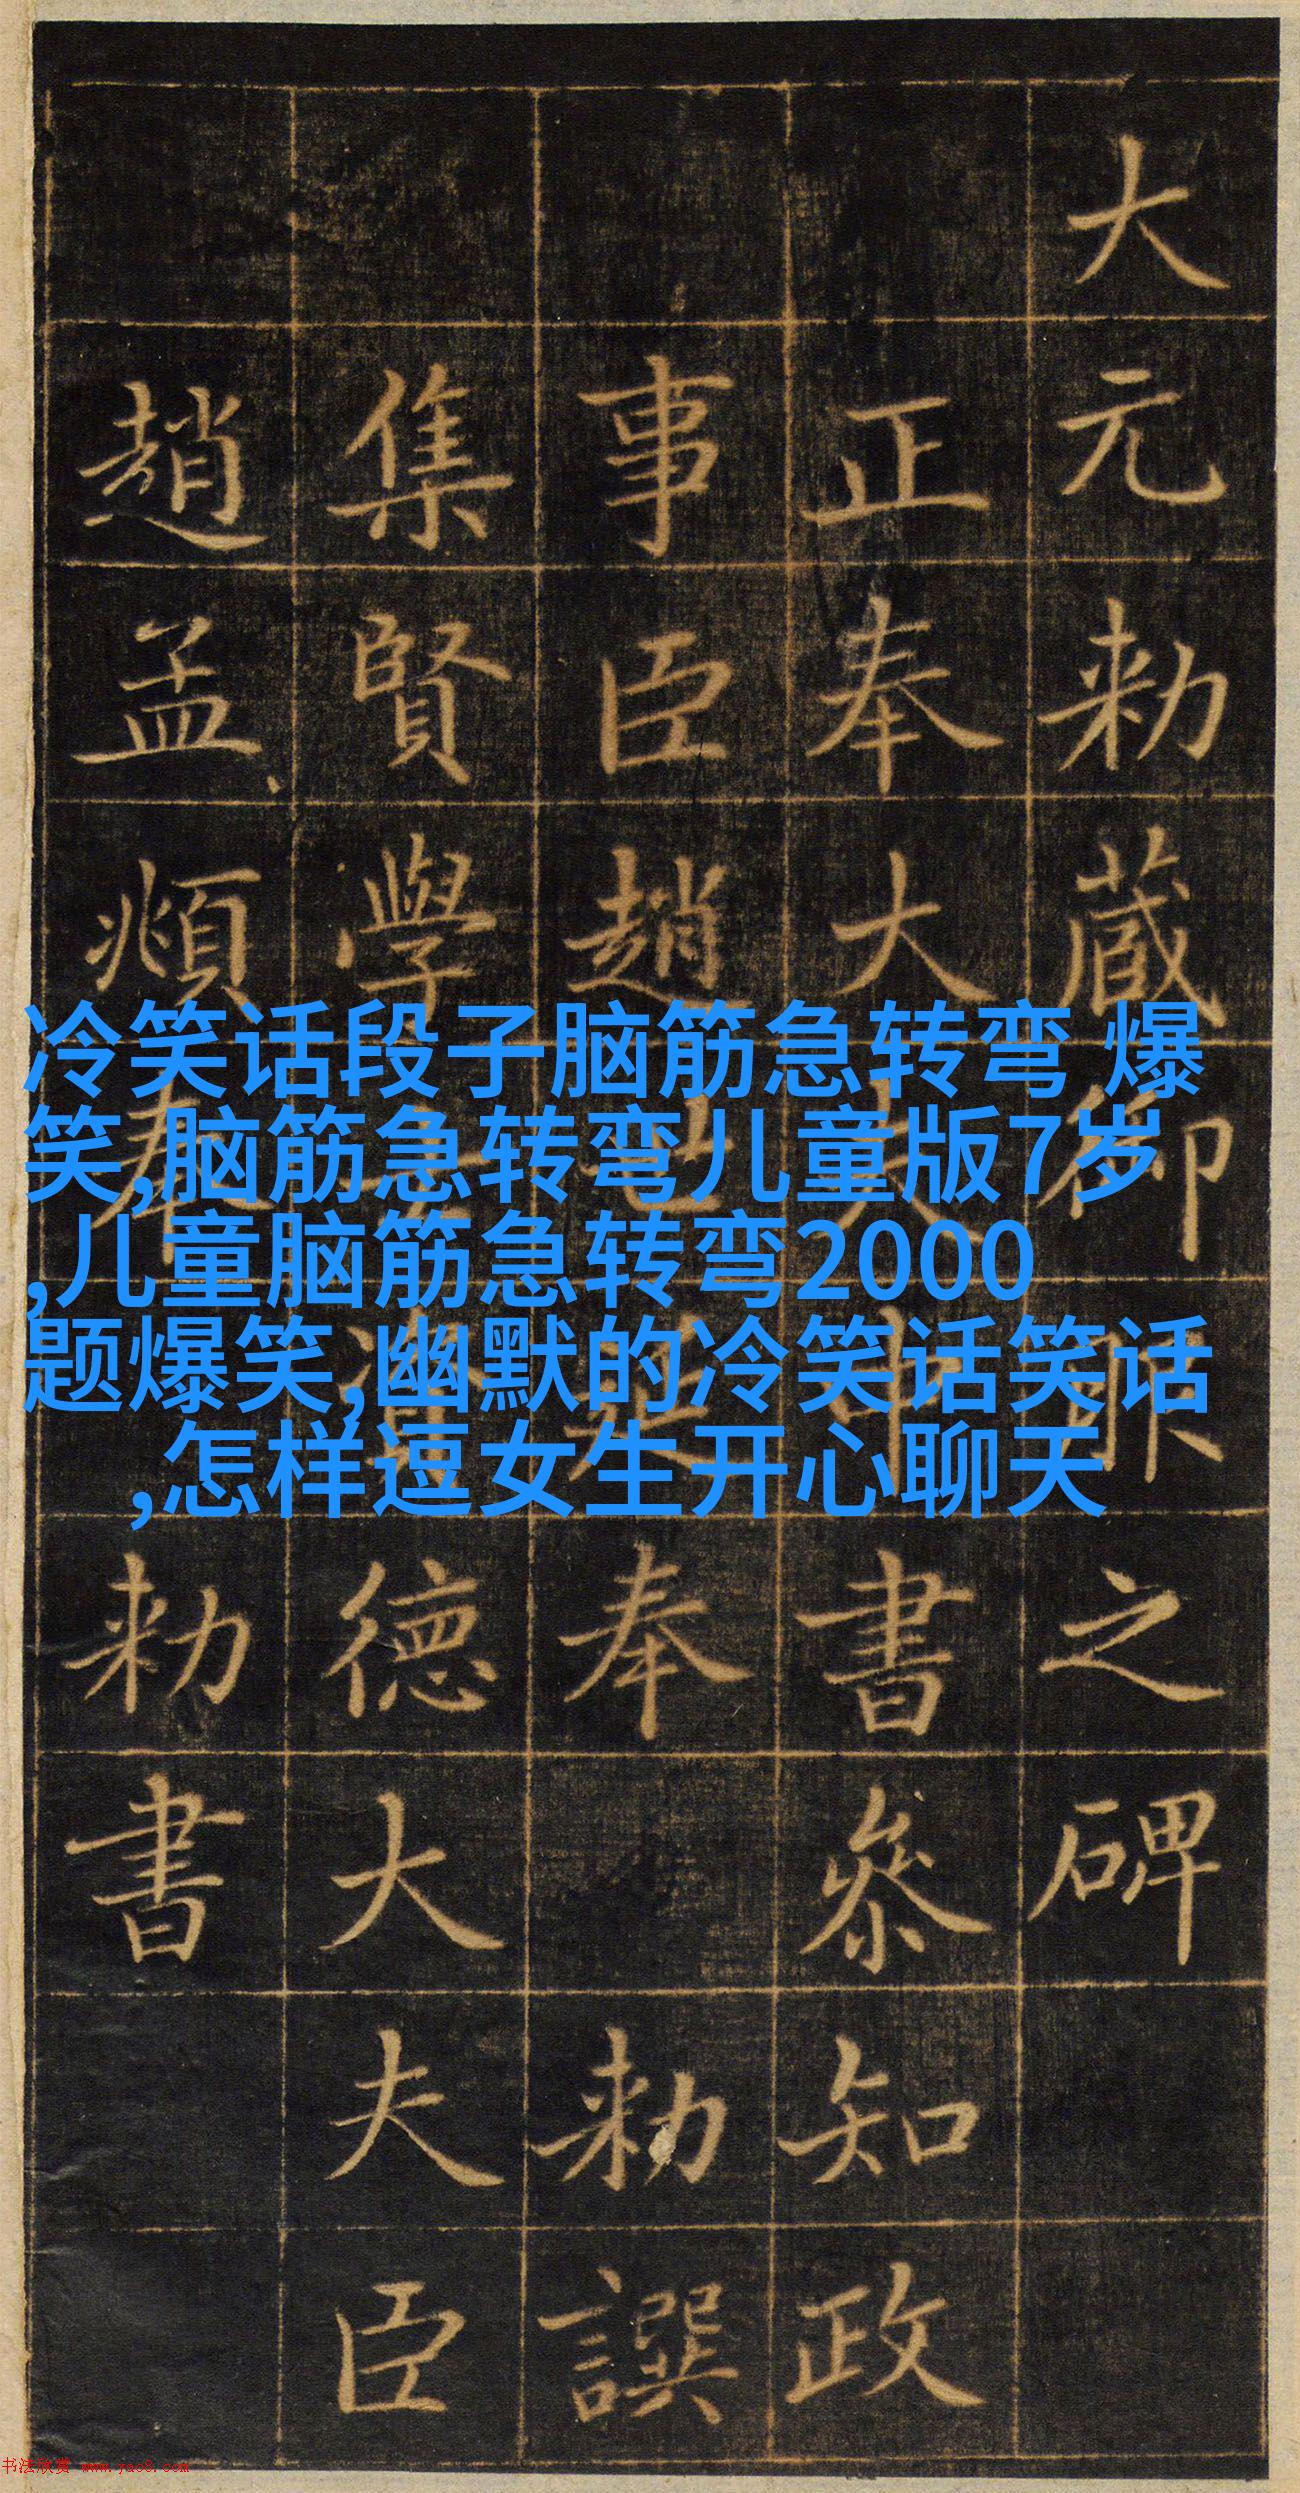 大元勅藏御服之碑
正奉大夫中書叅知政
事臣趙世延奉勅譔
集賢學士資德大夫臣
趙孟頫奉勅書
冷笑话段子脑筋急转弯 爆
笑,脑筋急转弯儿童版7岁
,儿童脑筋急转弯2000
题爆笑,幽默的冷笑话笑话
,怎样逗女生开心聊天
书法欣赏 www.yac8.com